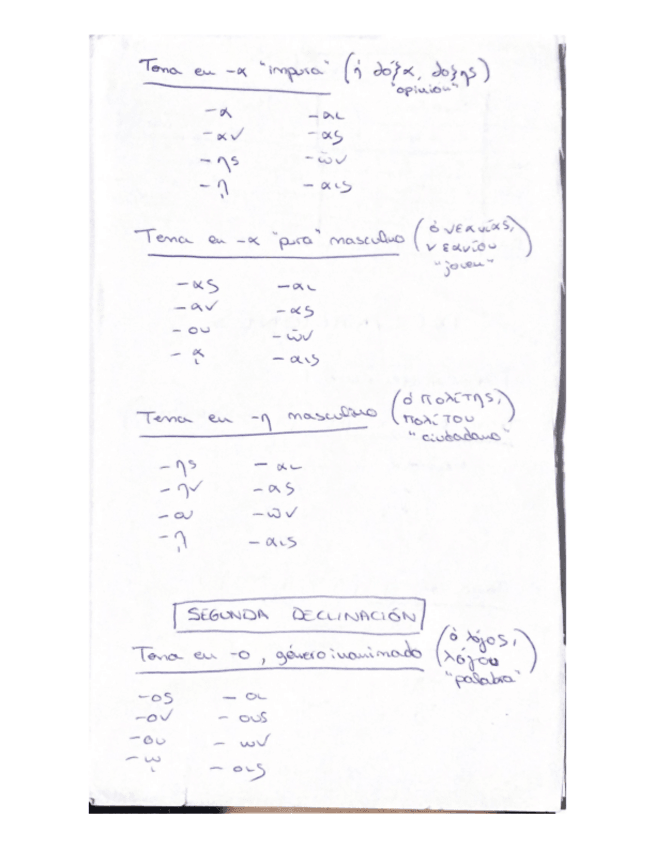 Tema en -α "impura" (ἡ δόξα, δόξης)
"opinión"
-α -αι
-αν -ας
-ης -ῶν
-ῃ -αις
Tema en -α "pura" masculino (ὁ νεανίας,
νεανίου
"joven"
-ας -αι
-αν -ας
-ου -ῶν
-ᾳ -αις
Tema en -η masculino (ὁ πολίτης,
πολίτου
"ciudadano"
-ης -αι
-ην -ας
-ου -ῶν
-ῃ -αις
SEGUNDA DECLINACIÓN
Tema en -ο, género inanimado (ὁ λόγος,
λόγου
"palabra"
-ος -οι
-ον -ους
-ου -ων
-ῳ -οις